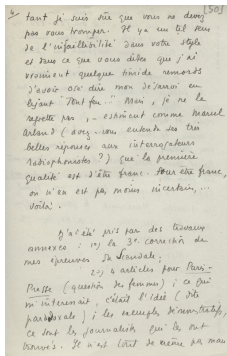 4
[50]
tant je suis sûr que vous ne devez
pas vous tromper. Il y a un tel sens
de l'infaillibilité dans votre style
et dans ce que vous dites que j'ai
vraiment quelque timide remords
d'avoir osé dire mon désarroi en
lisant "Tout fau..." Mais, je ne le
regrette pas, estimant comme Marcel
Arland (avez-vous entendu ses très
belles réponses aux interrogateurs
radiophonistes?) que la première
qualité est d'être franc. Pour être franc,
on n'en est pas moins incertain,...
voilà.
J'ai été pris par des travaux
annexes: 1º) la 3e correction de
mes épreuves du Scandale;
2º) 4 articles pour Paris-
Presse (question des femmes); ce qui
m'intéressait, c'était l'idée (dite
paradoxale); les exemples démonstratifs,
ce sont les journalistes qui les ont
trouvés. Il n'est tout de même pas mau